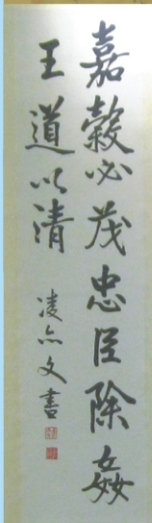 嘉穀必茂忠臣除姦
王道以清
凌亦文書